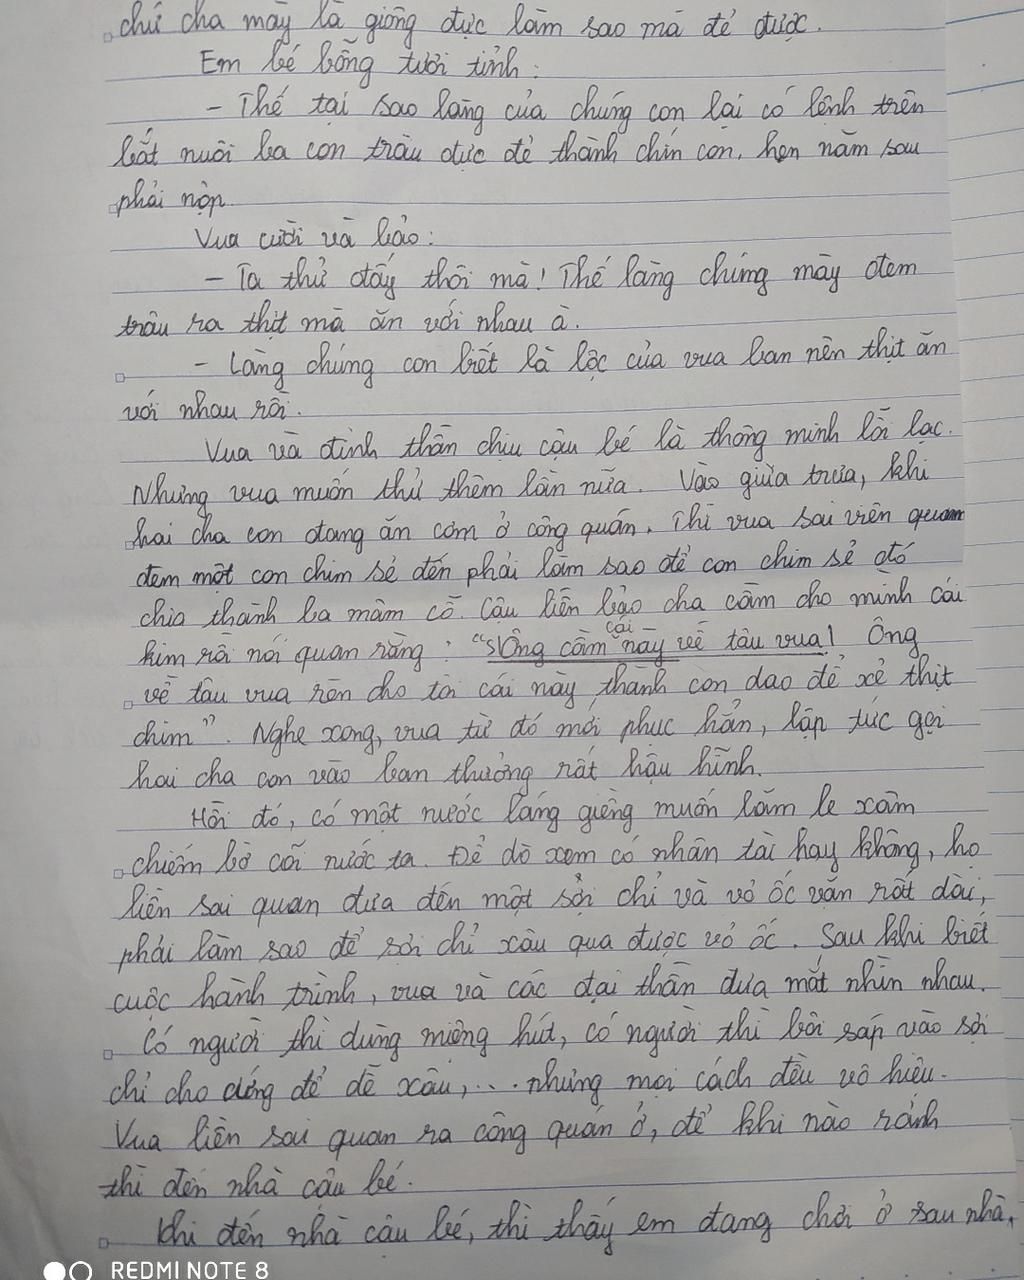 chứ cha mày là giống đực làm sao mà đẻ được.
Em bé bỗng tươi tỉnh:
- Thế tại sao làng của chúng con lại có lệnh trên
bắt nuôi ba con trâu đực đẻ thành chín con, hẹn năm sau
phải nộp
Vua cười và bảo:
- Ta thử đấy thôi mà! Thế làng chúng mày đem
trâu ra thịt mà ăn với nhau à.
- Làng chúng con biết là lộc của vua ban nên thịt ăn
với nhau rồi.
Vua và đình thần chịu cậu bé là thông minh lỗi lạc.
Nhưng vua muốn thử thêm lần nữa. Vào giữa trưa, khi
hai cha con đang ăn cơm ở công quán. Thì vua sai viên quan
đem một con chim sẻ đến phải làm sao để con chim sẻ đó
chia thành ba mâm cỗ. Cậu liền bảo cha cầm cho mình cái
kim rồi nói quan rằng: "Ông cầm cái này về tâu vua! Ông
về tâu vua rèn cho tôi cái này thành con dao để xẻ thịt
chim". Nghe xong, vua từ đó mới phục hẳn, lập tức gọi
hai cha con vào ban thưởng rất hậu hĩnh.
Hồi đó, có một nước láng giềng muốn lăm le xâm
chiếm bờ cõi nước ta. Để dò xem có nhân tài hay không, họ
liền sai quan đưa đến một sợi chỉ và vỏ ốc vặn rất dài,
phải làm sao để sợi chỉ xâu qua được vỏ ốc. Sau khi biết
cuộc hành trình, vua và các đại thần đưa mắt nhìn nhau.
Có người thì dùng miệng hút, có người thì bôi sáp vào sợi
chỉ cho cứng để dễ xâu,... nhưng mọi cách đều vô hiệu.
Vua liền sai quan ra công quán ở, để khi nào rảnh
thì đến nhà cậu bé.
Khi đến nhà cậu bé, thì thấy em đang chơi ở sau nhà,
REDMI NOTE 8